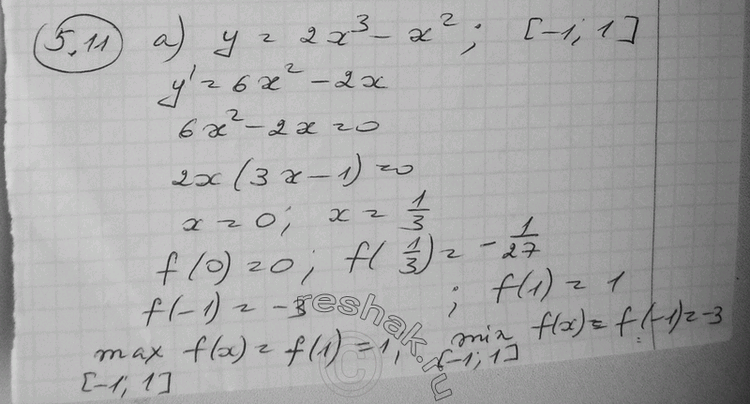 5.11 а) y = 2x³ - x²; [-1; 1]
y' = 6x² - 2x
6x² - 2x = 0
2x(3x - 1) = 0
x = 0; x = 1/3
f(0) = 0; f(1/3) = - 1/27
f(-1) = -3 ; f(1) = 1
max f(x) = f(1) = 1, min f(x) = f(-1) = -3
[-1; 1] [-1; 1]
reshak.ru